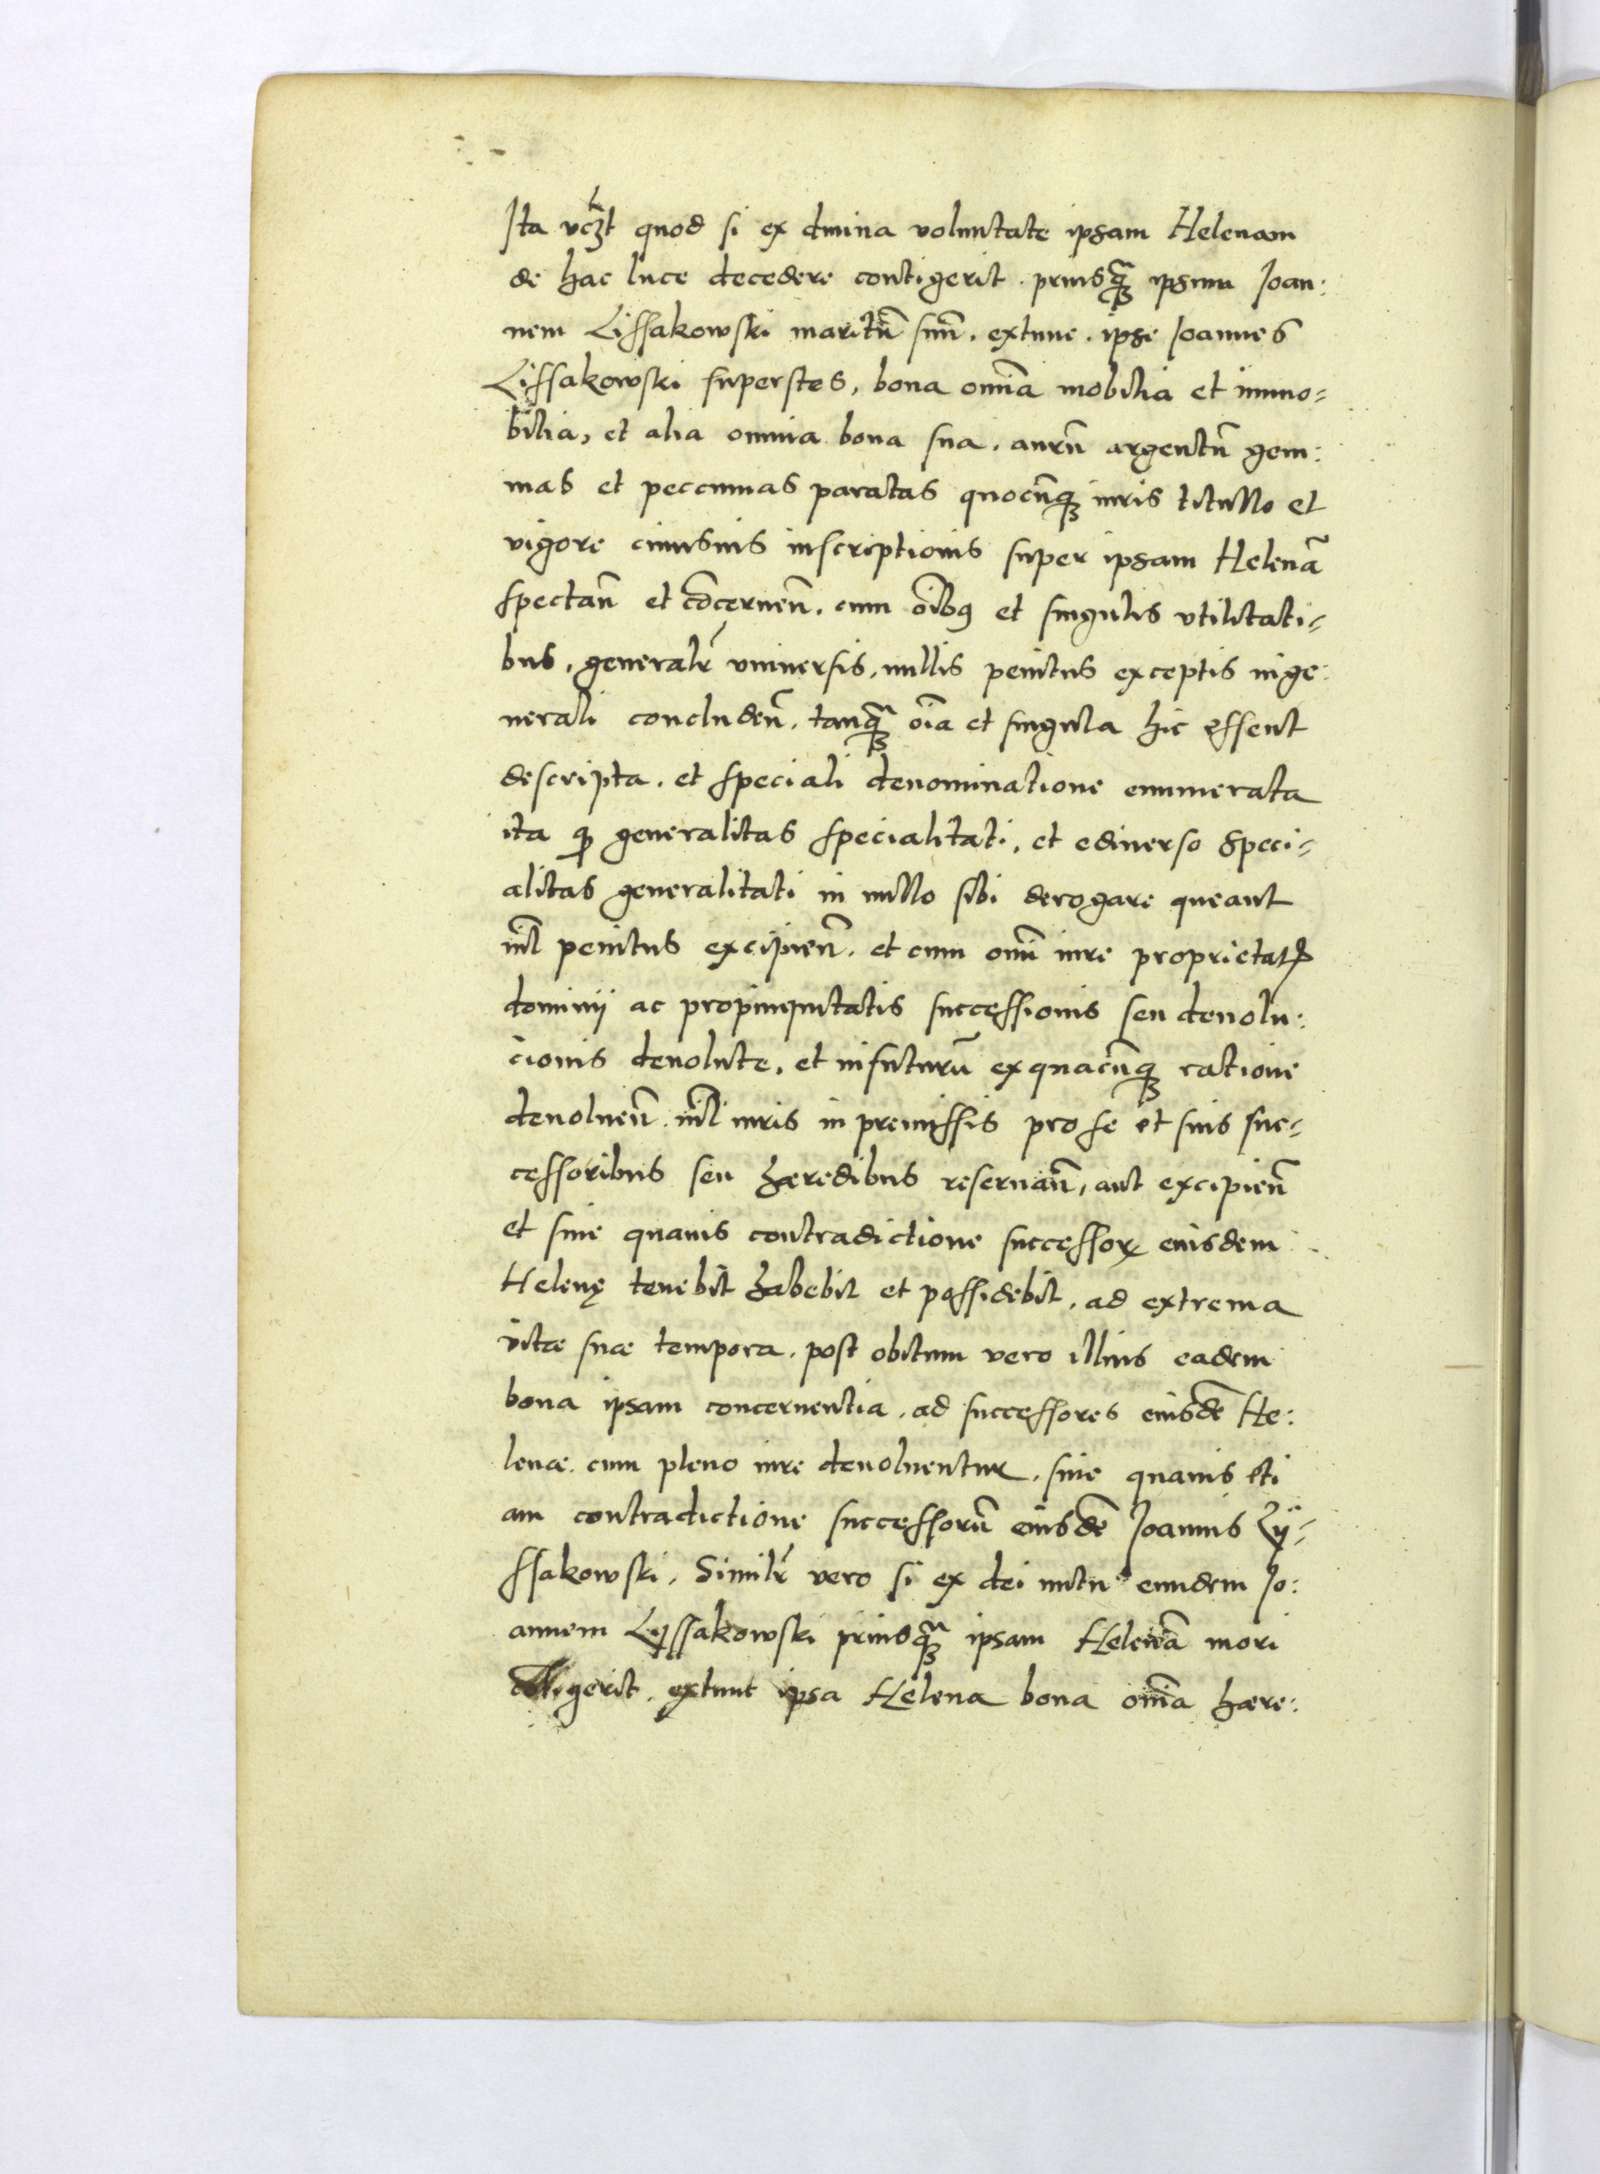 Ita vcʒt quod si ex diuina voluntate ipsam Helenam
de hac luce decedere contigerit. priusq̃ꝫ ipsum Joan:
nem Lissakowski maritũ suũ. extunc. ipse Joannes
Lissakowski superstes, bona om̃ia mobilia et immo=
bilia, et alia omnia bona sua. aurũ argentũ gem:
mas et peccunias paratas quocũqꝫ iuris titullo et
vigore cuiusuis inscriptionis super ipsam Helenã
spectañ et cõcerneñ. cum oĩbꝯ et singulis vtilitati=
bus, generalr̃ vniuersis, nullis penitus exceptis inge:
nerali concludeñ. tanq̃ꝫ oĩa et singula hic essent
descripta. et speciali denominatione enumerata
ita ꝙ generalitas specialitati, et ediuerso speci=
alitas generalitati in nullo sibi derogare queant
nil̃ penitus excipieñ. et cum om̃i iure proprietatꝭ
dominij ac propinquitatis successionis seu deuolu:
cionis deuolute, et infuturũ exquacũqꝫ ratione
deuolueñ. nil̃ iuris in premissis pro se et suis suc=
cessoribus seu hæredibus reseruañ, aut excipieñ
et sine quauis contradictione successoꝝ eiusdem
Helenę tenebit habebit et possidebit, ad extrema
vitæ suæ tempora. post obitum vero illius eadem
bona ipsam concernentia, ad successores eiusdẽ He:
lenæ cum pleno iure deuoluentur. sine quauis eti
am contradictione successorũ eiusdẽ Joannis Lÿ=
ssakowski. Similr̃ vero si ex dei nutu eundem Jo:
annem Lyssakowski priusq̃ꝫ ipsam Helenã mori
cõtigerit. extunc ipsa Helena bona om̃ia hære: